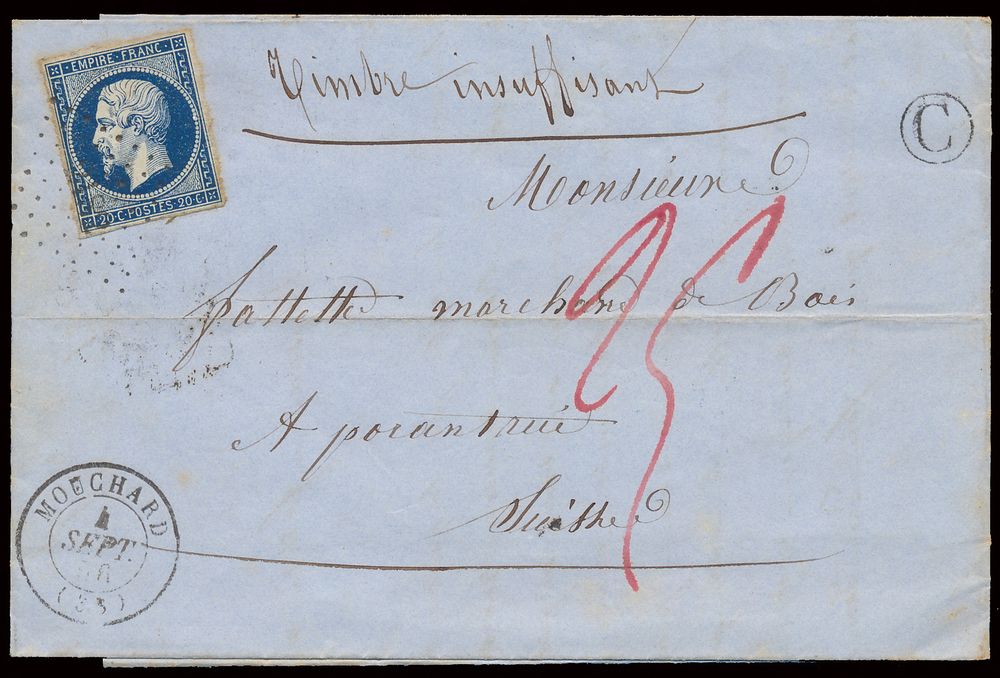 EMPIRE · FRANC ·
20·C·POSTES·20·C·
Timbre insuffisant
C
Monsieur
fattette marchand de Bois
A porantrui
Suisse
MOUCHARD
4
SEPT.
56
25